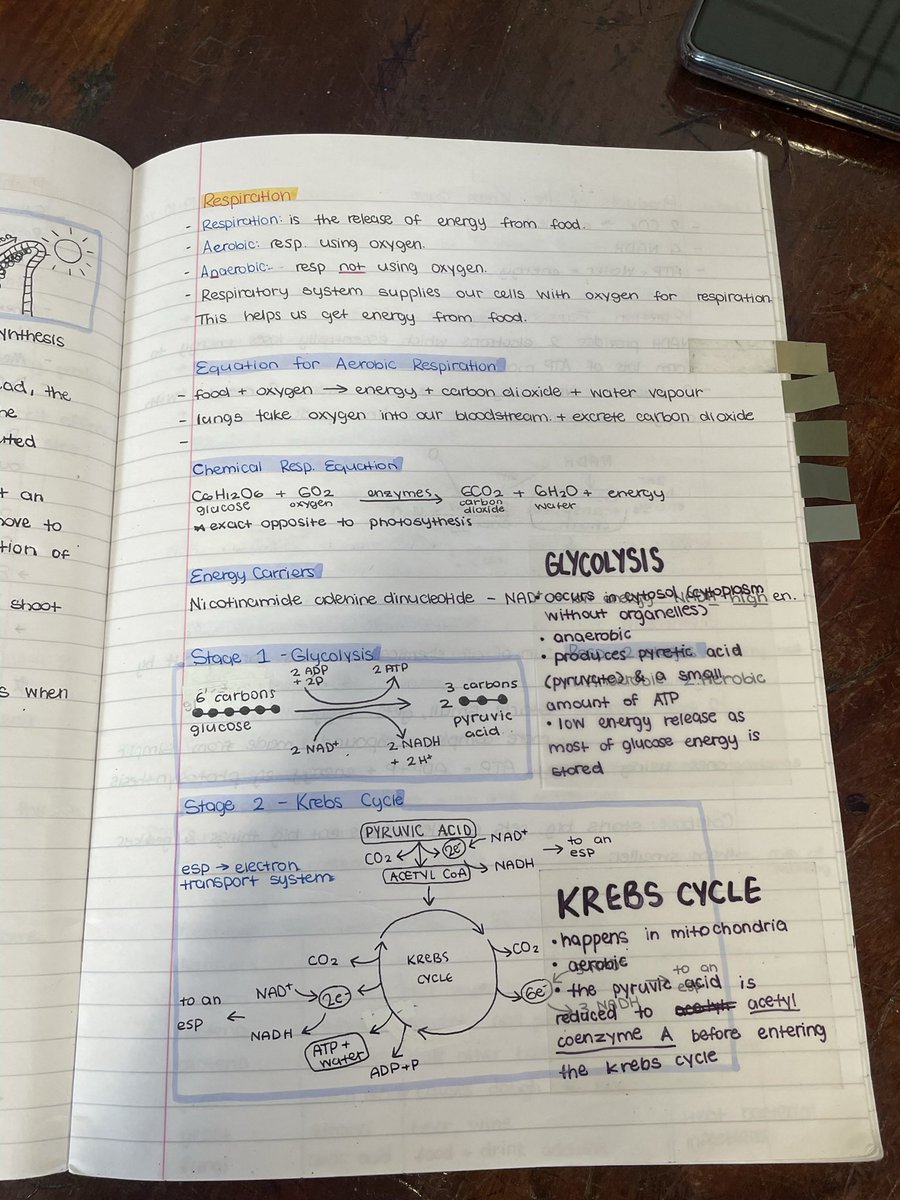 ynthesis
ad, the
ne
rted
t an
ove to
tion of
shoot
s when
Respiration
- Respiration: is the release of energy from food.
- Aerobic: resp. using oxygen.
- Anaerobic:- resp not using oxygen.
- Respiratory system supplies our cells with oxygen for respiration.
This helps us get energy from food.
Equation for Aerobic Respiration
- food + oxygen → energy + carbon dioxide + water vapour
- lungs take oxygen into our bloodstream + excrete carbon dioxide
-
Chemical Resp. Equation
C6H12O6 + 6O2 enzymes → 6CO2 + 6H2O + energy
glucose oxygen carbon dioxide water
* exact opposite to photosythesis
Energy Carriers
Nicotinamide adenine dinucleotide - NAD+ high en.
GLYCOLYSIS
• occurs in cytosol (cytoplasm
without organelles)
• anaerobic
• produces pyretic acid
(pyruvate) & a small
amount of ATP
• low energy release as
most of glucose energy is
stored
Aerobic
Stage 1 - Glycolysis
2 ADP
+ 2P
2 ATP
6 carbons
glucose
3 carbons
2
pyruvic
acid
2 NAD+
2 NADH
+ 2H+
Stage 2 - Krebs Cycle
esp → electron
transport system
PYRUVIC ACID
CO2 2e- NAD+
NADH → to an
esp
ACETYL CoA
KREBS
CYCLE
CO2
CO2
NAD+ → 2e-
6e-
to an
esp ←
NADH
ATP +
water
ADP+P
to an
esp
3 NADH
KREBS CYCLE
• happens in mitochondria
• aerobic
• the pyruvic acid is
reduced to acetyl
coenzyme A before entering
the krebs cycle